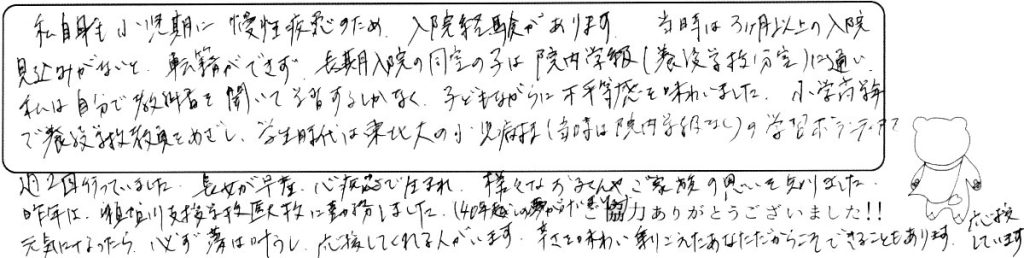 私自身も小児期に慢性疾患のため、入院経験があります。 当時は3ヶ月以上の入院
見込みがないと、転籍ができず、長期入院の同室の子は院内学級(養護学校分室)に通い、
私は自分で教科書を開いて学習するしかなく、子どもながらに不平等感を味わいました。小学高学年
で養護学校教員をめざし、学生時代は東北大の小児病棟(当時は院内学級なし)の学習ボランティアで
週2回行っていました。長女が早産、心疾患で生まれ、様々なお子さんやご家族の思いを知りました。
昨年は、支援学校医大校に勤務しました。(40年越しの夢が
ご協力ありがとうございました!!
元気になったら、必ず夢は叶うし、応援してくれる人がいます。辛さを味わい乗りこえたあなただからこそできることもあります。応援
しています